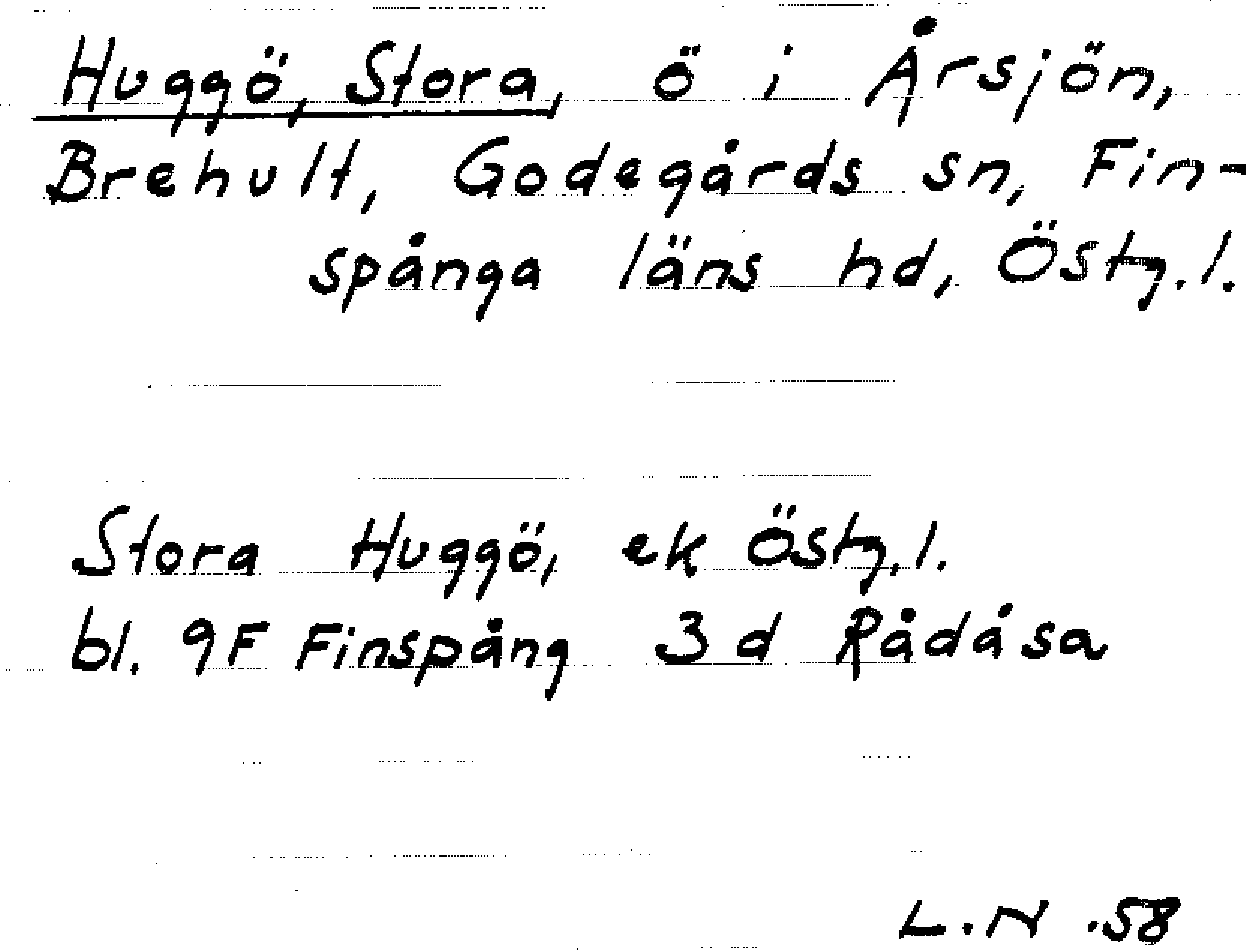 Huggö, Stora, ö i Årsjön,
Brehult, Godegårds sn, Fin-
spånga läns hd, Östg.l.
Stora Huggö, ek Östg.l.
bl. 9F Finspång 3d Rådåsa
L.N .58